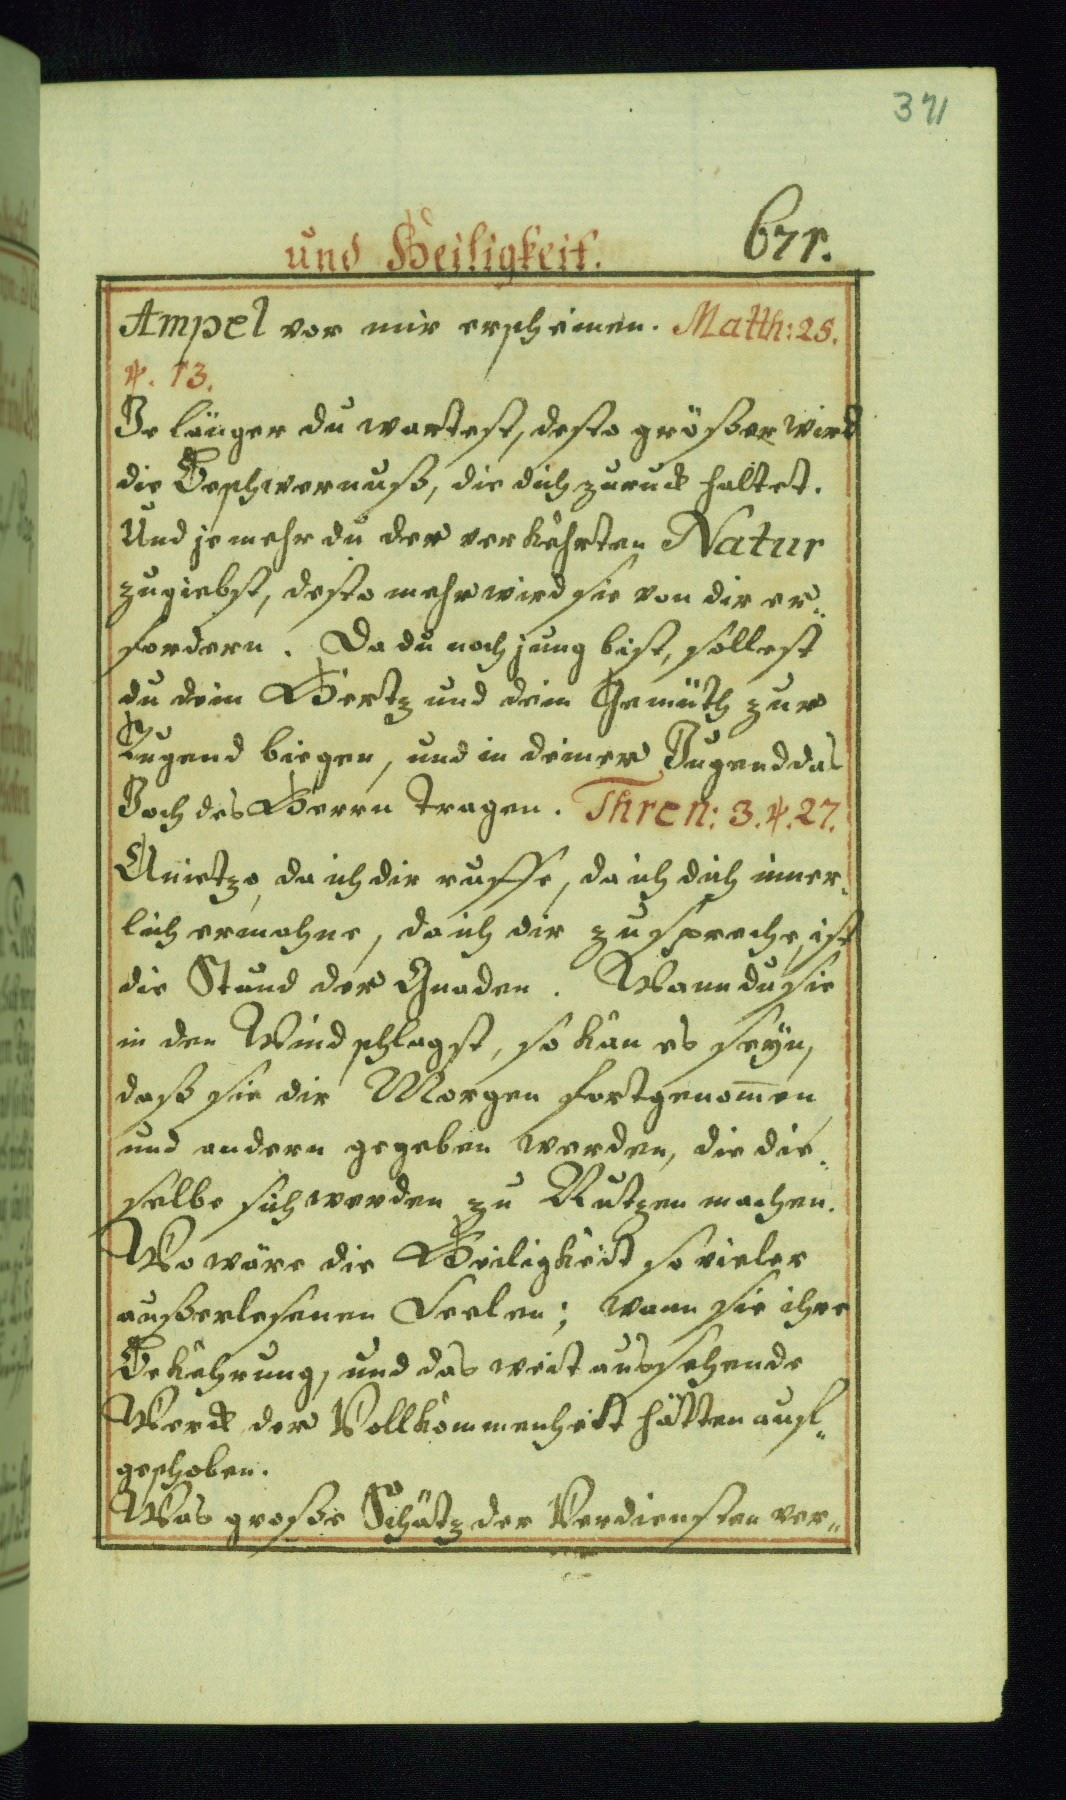 371
und Heiligkeit. 671.
Ampel vor mir erscheinen. Matth: 25.
℣. 13.
Je länger du wartest, desto größer wird
die Beschwernuß, die dich zuruck haltet.
Und je mehr du der verkehrten Natur
zugiebst, desto mehr wird sie von dir er„
fordern. Da du noch jung bist, sollest
du dein Hertz und dein Gemüth zur
Tugend biegen, und in deiner Jugend das
Joch des Herrn tragen. Thren: 3. ℣. 27.
Anietzo, da ich dir ruffe, da ich dich inner„
lich ermahne, da ich dir zuspreche, ist
die Stund der Gnaden. Wann du sie
in den Wind schlagst, so kan es seÿn,
daß sie dir Morgen fortgenom̅en
und andern gegeben werden, die die„
selbe sich werden zu Nutzen machen.
Wo wäre die Heiligkeit so vieler
außerlesenen Seelen; wann sie ihre
Bekehrung, und das weit aussehende
Werck der Vollkommenheit hätten auf„
geschoben.
Was große Schätz der Verdiensten ver„